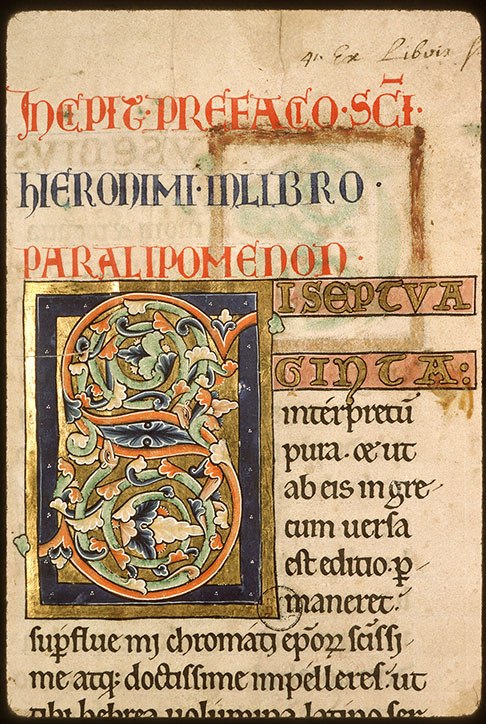 4. Ex Libris
INCPIT · PREFACIO · SCI ·
hIERONIMI · IN LIBRO ·
PARALIPOMENON ·
SI SEPTVA
GINTA :
interpretū
pura · & ut
ab eis in gre
cum uersa
est editio · p̄
maneret ·
supflue mi chromati ep̄oꝝ sc̄issi
me atq; doctissime impelleres · ut
tibi hebrea uolumina latino ser